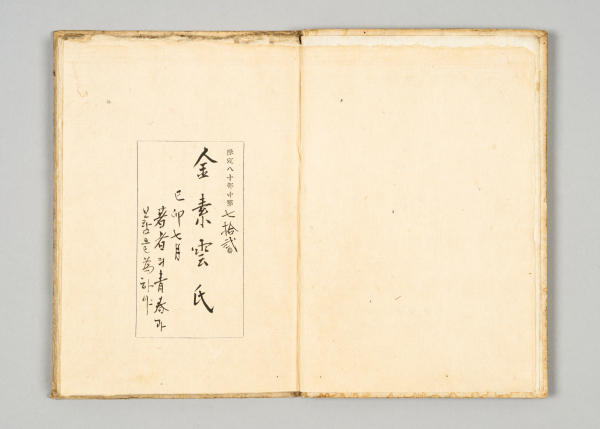 限定八十部中第七拾貳
金素雲氏
己卯七月
著者의靑春과
보람을爲하야